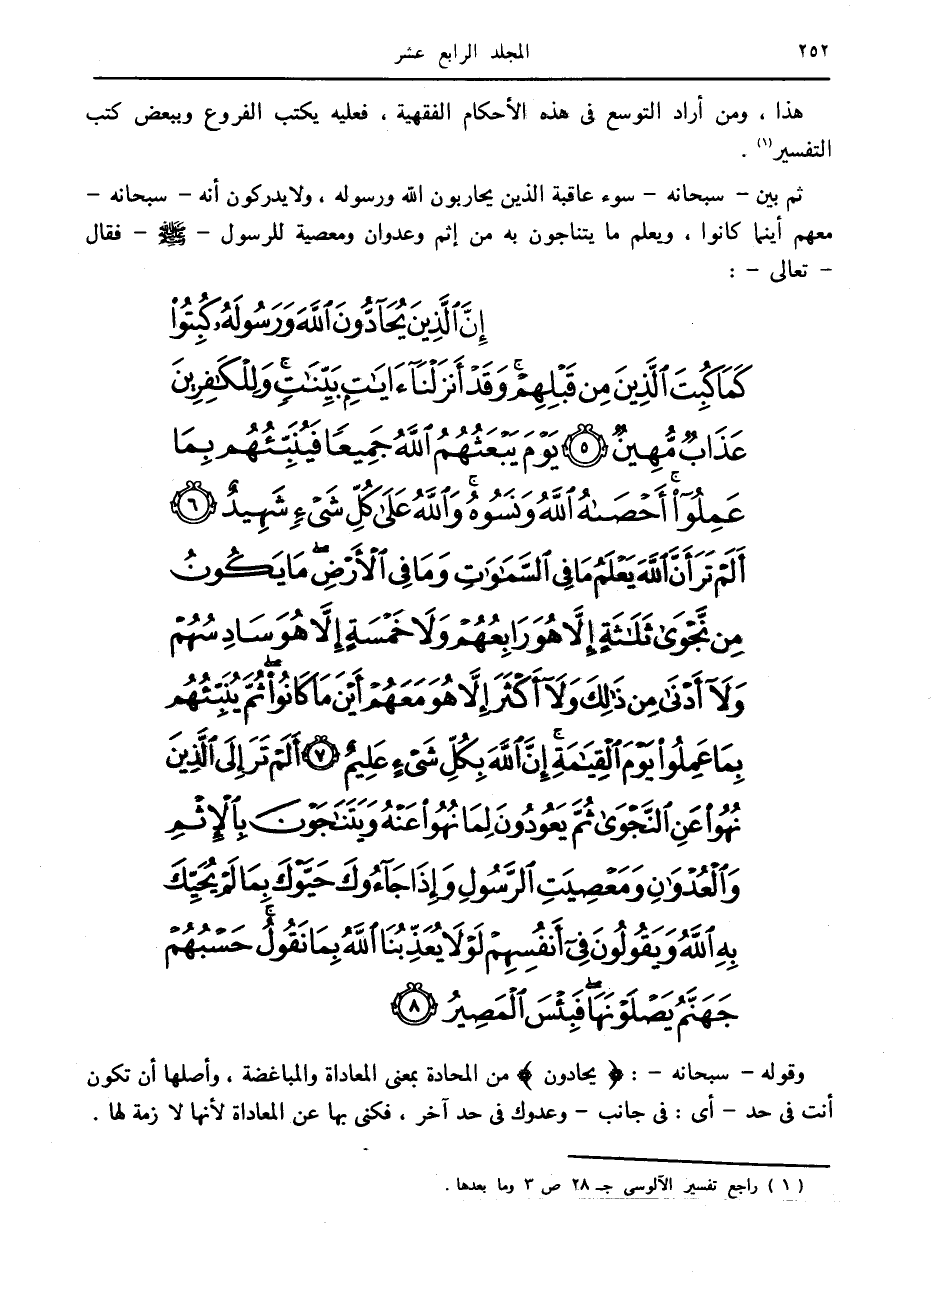 ٢٥٢ المجلد الرابع عشر
هذا ، ومن أراد التوسع فى هذه الأحكام الفقهية ، فعليه يكتب الفروع وببعض كتب
التفسير(١) .
ثم بين – سبحانه – سوء عاقبة الذين يحاربون الله ورسوله ، ولايدركون أنه – سبحانه –
معهم أينما كانوا ، ويعلم ما يتناجون به من إثم وعدوان ومعصية للرسول – ﷺ – فقال
– تعالى – :
إِنَّ ٱلَّذِينَ يُحَآدُّونَ ٱللَّهَ وَرَسُولَهُۥ كُبِتُوا۟
كَمَا كُبِتَ ٱلَّذِينَ مِن قَبْلِهِمْ ۚ وَقَدْ أَنزَلْنَآ ءَايَٰتٍۭ بَيِّنَٰتٍ ۚ وَلِلْكَٰفِرِينَ
عَذَابٌ مُّهِينٌ ٥ يَوْمَ يَبْعَثُهُمُ ٱللَّهُ جَمِيعًا فَيُنَبِّئُهُم بِمَا
عَمِلُوٓا۟ ۚ أَحْصَىٰهُ ٱللَّهُ وَنَسُوهُ ۚ وَٱللَّهُ عَلَىٰ كُلِّ شَىْءٍ شَهِيدٌ ٦
أَلَمْ تَرَ أَنَّ ٱللَّهَ يَعْلَمُ مَا فِى ٱلسَّمَٰوَٰتِ وَمَا فِى ٱلْأَرْضِ ۖ مَا يَكُونُ
مِن نَّجْوَىٰ ثَلَٰثَةٍ إِلَّا هُوَ رَابِعُهُمْ وَلَا خَمْسَةٍ إِلَّا هُوَ سَادِسُهُمْ
وَلَآ أَدْنَىٰ مِن ذَٰلِكَ وَلَآ أَكْثَرَ إِلَّا هُوَ مَعَهُمْ أَيْنَ مَا كَانُوا۟ ۖ ثُمَّ يُنَبِّئُهُم
بِمَا عَمِلُوا۟ يَوْمَ ٱلْقِيَٰمَةِ ۚ إِنَّ ٱللَّهَ بِكُلِّ شَىْءٍ عَلِيمٌ ٧ أَلَمْ تَرَ إِلَى ٱلَّذِينَ
نُهُوا۟ عَنِ ٱلنَّجْوَىٰ ثُمَّ يَعُودُونَ لِمَا نُهُوا۟ عَنْهُ وَيَتَنَٰجَوْنَ بِٱلْإِثْمِ
وَٱلْعُدْوَٰنِ وَمَعْصِيَتِ ٱلرَّسُولِ وَإِذَا جَآءُوكَ حَيَّوْكَ بِمَا لَمْ يُحَيِّكَ
بِهِ ٱللَّهُ وَيَقُولُونَ فِىٓ أَنفُسِهِمْ لَوْلَا يُعَذِّبُنَا ٱللَّهُ بِمَا نَقُولُ ۚ حَسْبُهُمْ
جَهَنَّمُ يَصْلَوْنَهَا ۖ فَبِئْسَ ٱلْمَصِيرُ ٨
وقوله – سبحانه – : ﴿ يحادون ﴾ من المحادة بمعنى المعاداة والمباغضة ، وأصلها أن تكون
أنت فى حد – أى : فى جانب – وعدوك فى حد آخر ، فكنى بها عن المعاداة لأنها لا زمة لها .
( ١ ) راجع تفسير الآلوسى جـ ٢٨ ص ٣ وما بعدها .